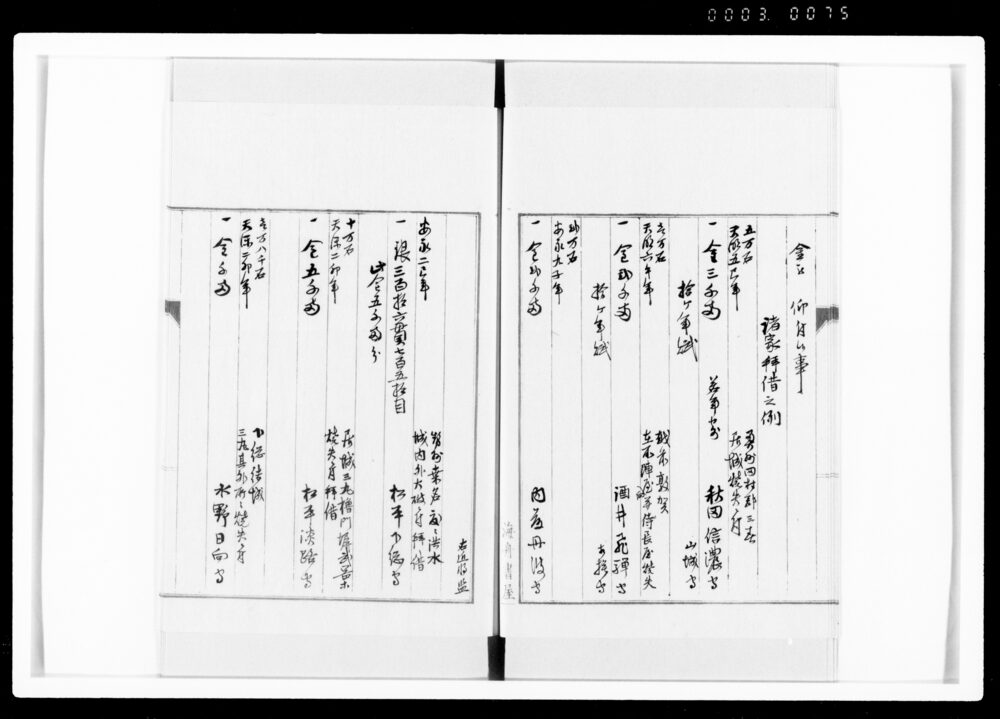 0003 0075
仰付候事
諸家拝借之例
五万石
天明五巳年
一 金三千両
拾ケ年賦
奥州田村郡三春
居城焼失ニ付
若年ニ而
秋田信濃守
山城守
壱万石
天明六午年
一 金弐千両
拾ケ年賦
越前敦賀
在所陣屋并侍長屋焼失
酒井飛騨守
弐万石
安永九子年
一 金弐千両
内藤丹波守
海舟書屋
右近将監
安永二巳年
一 銀三百拾六貫七百五拾目
此金五千両分
勢州桑名度々洪水
城内外大破ニ付拝借
松平下総守
十万石
天保二卯年
一 金五千両
居城三丸櫓門
焼失ニ付拝借
松平淡路守
壱万八千石
天保二卯年
一 金千両
下総結城
三丸其外所々焼失ニ付
水野日向守